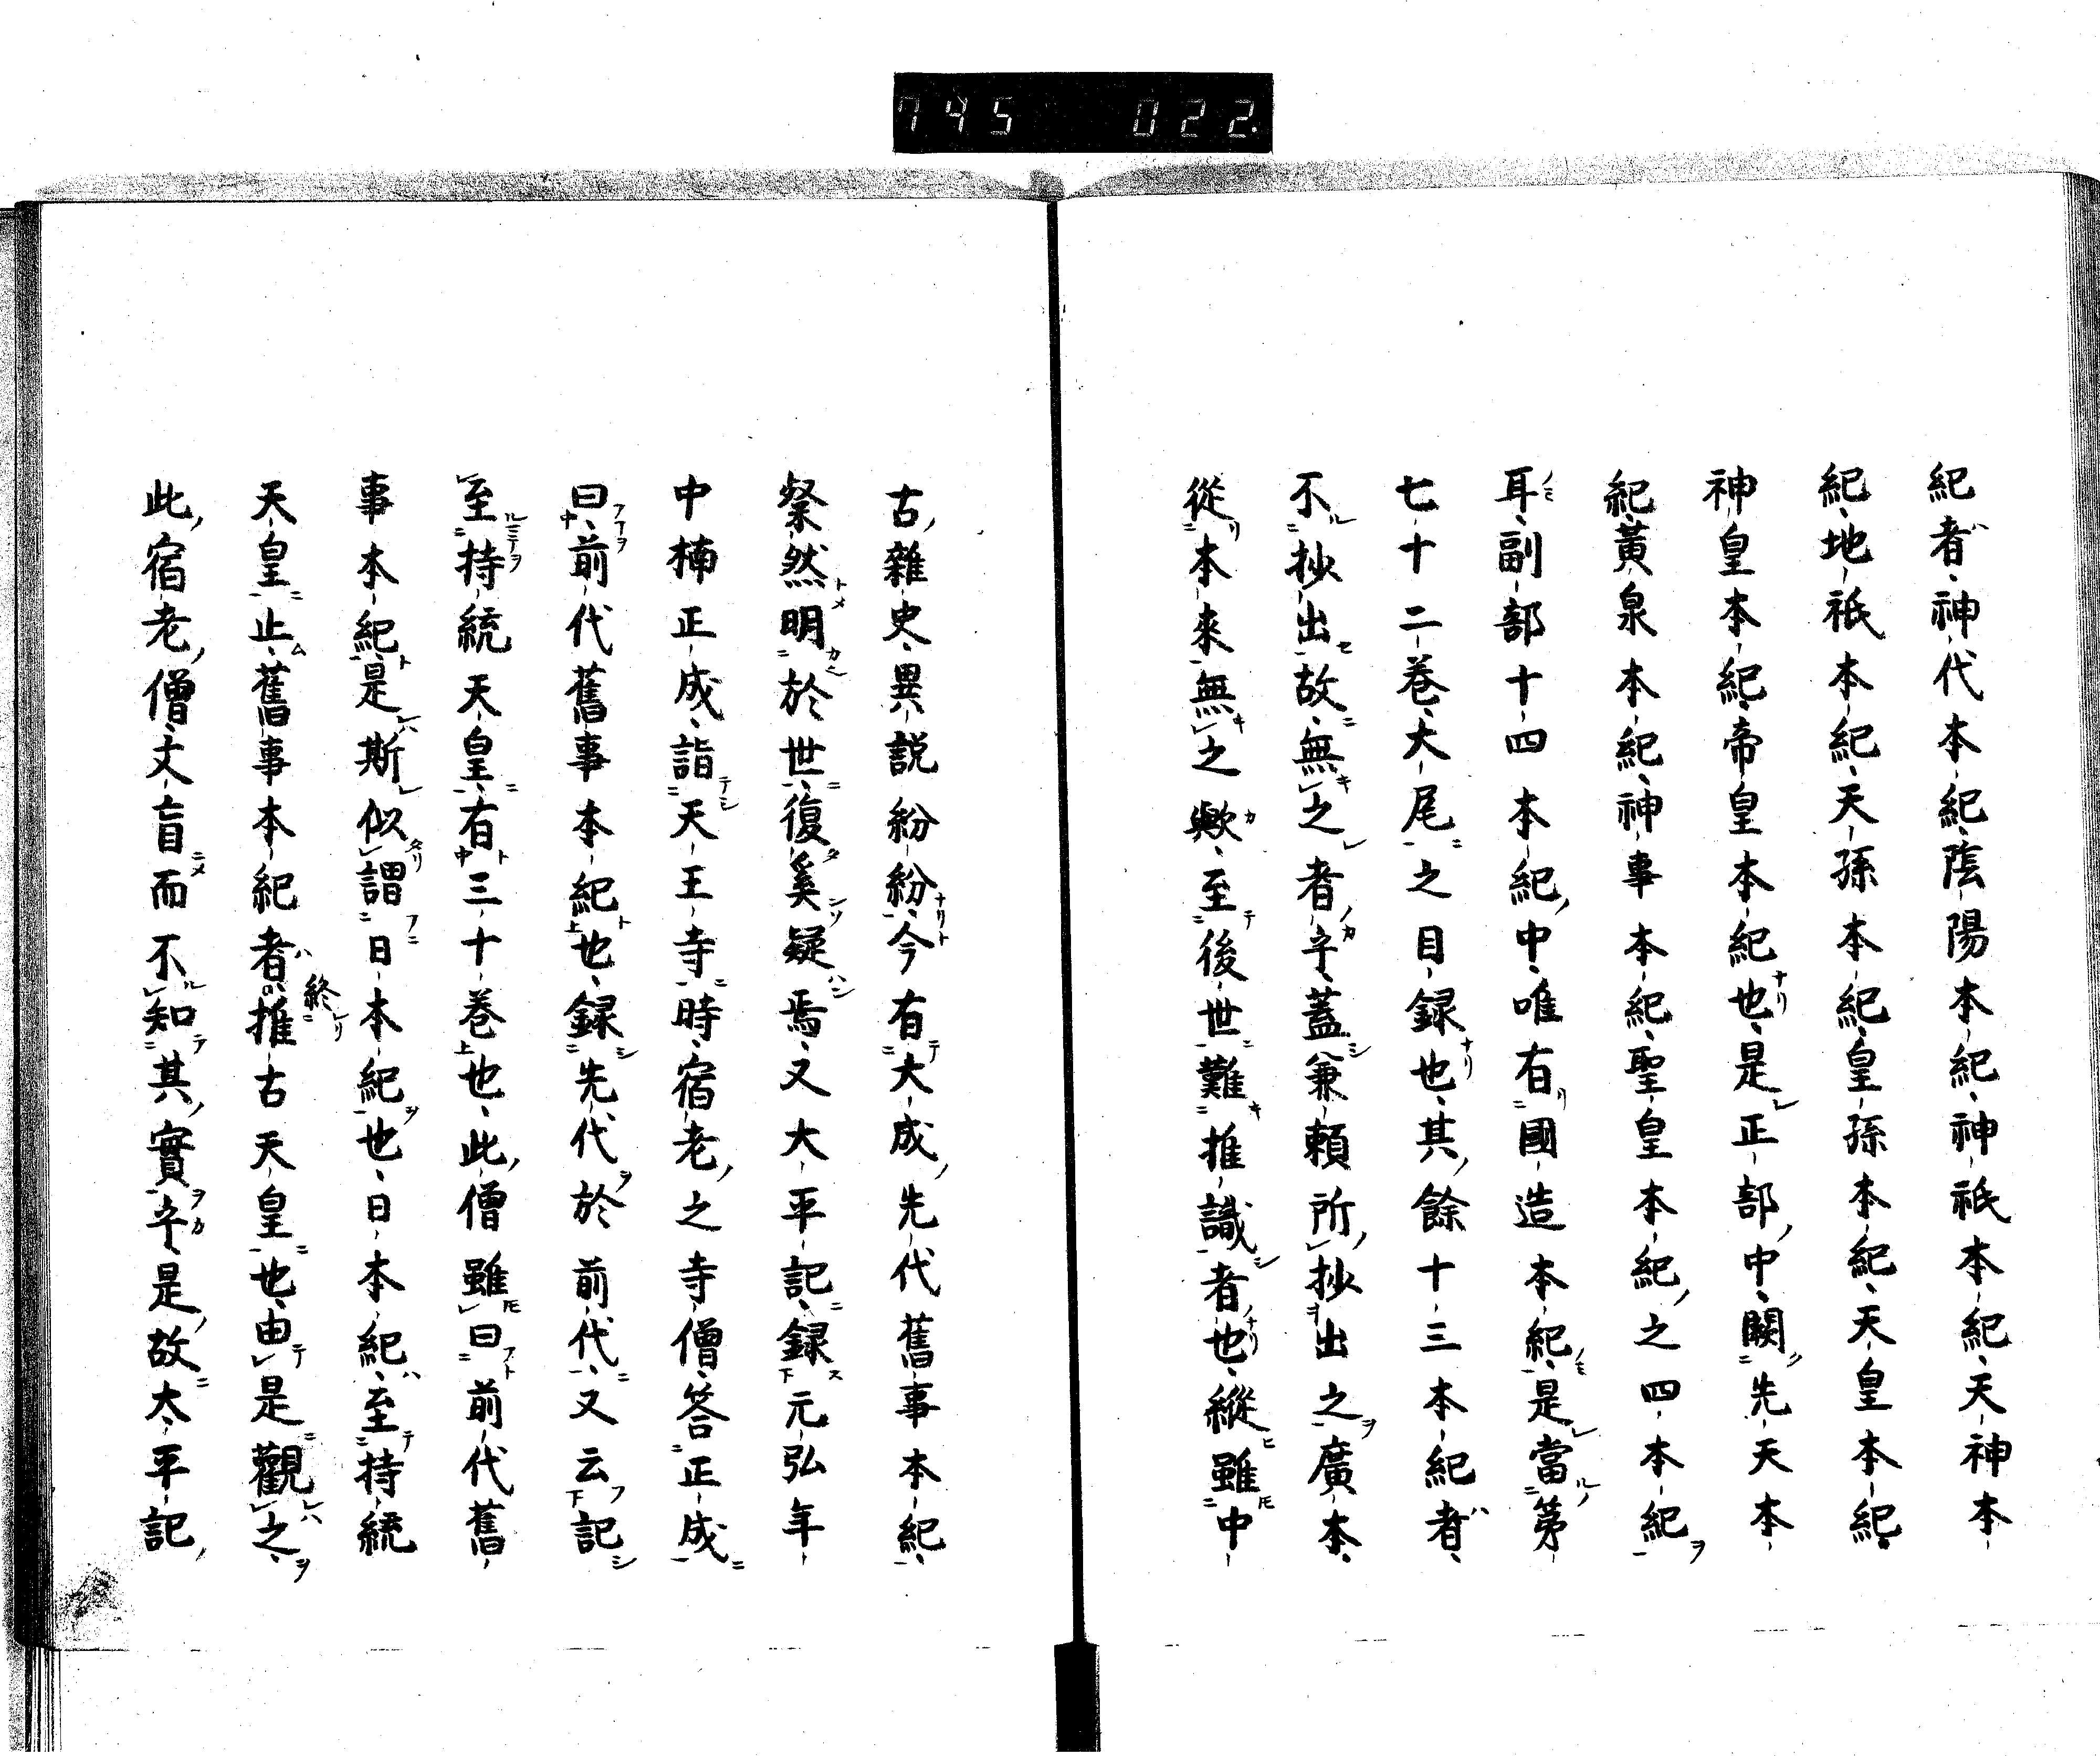 745 022
紀者神代本紀陰陽本紀神祇本紀天神本
紀地祇本紀天孫本紀皇孫本紀天皇本紀
神皇本紀帝皇本紀也是正部中闕先天本
紀黃泉本紀神事本紀聖皇本紀之四本紀
耳副部十四本紀中唯有國造本紀是當第
七十二巻大尾之目録也其餘十三本紀者
不抄出故無之者乎蓋兼頼所抄出之廣本
從本來無之歟至後世難推識者也縱雖中
古雜史異説紛紛今有大成先代舊事本紀
粲然明於世復奚疑焉又大平記録元弘年
中楠正成詣天王寺時宿老之寺僧答正成
曰前代舊事本紀也録先代於前代又云記
至持統天皇有三十巻也此僧雖曰前代舊
事本紀是斯似謂日本紀也日本紀至持統
天皇止舊事本紀者終推古天皇也由是觀之
此宿老僧丈盲而不知其實乎是故太平記